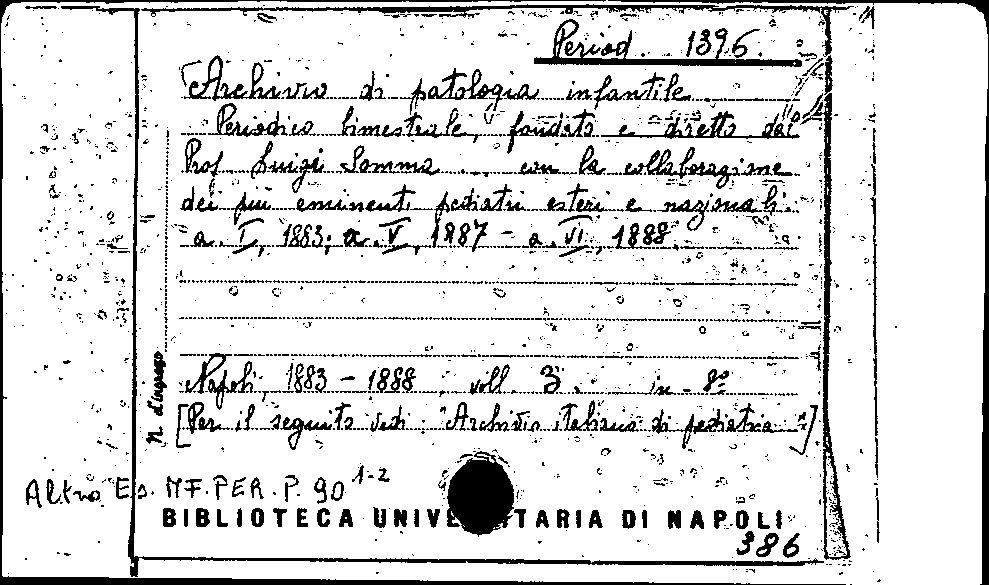 Period. 1396.
Archivio di patologia infantile
Periodico bimestrale, fondato e diretto dal
Prof. Luigi Somma ... con la collaborazione
dei più eminenti pediatri esteri e nazionali.
a. I, 1883; a. V, 1887 - a. VI, 1888.
Napoli, 1883 - 1888. voll. 3. in-8°
[Per il seguito vedi: "Archivio italiano di pediatria"]
N. d'ingresso
Altro Es. MF. PER. P. 90 1-2
BIBLIOTECA UNIVE TARIA DI NAPOLI
386